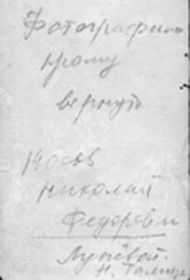 Фотографию
прошу
вернуть
Носов
Николай
Федорович
Лунёвой
Н.